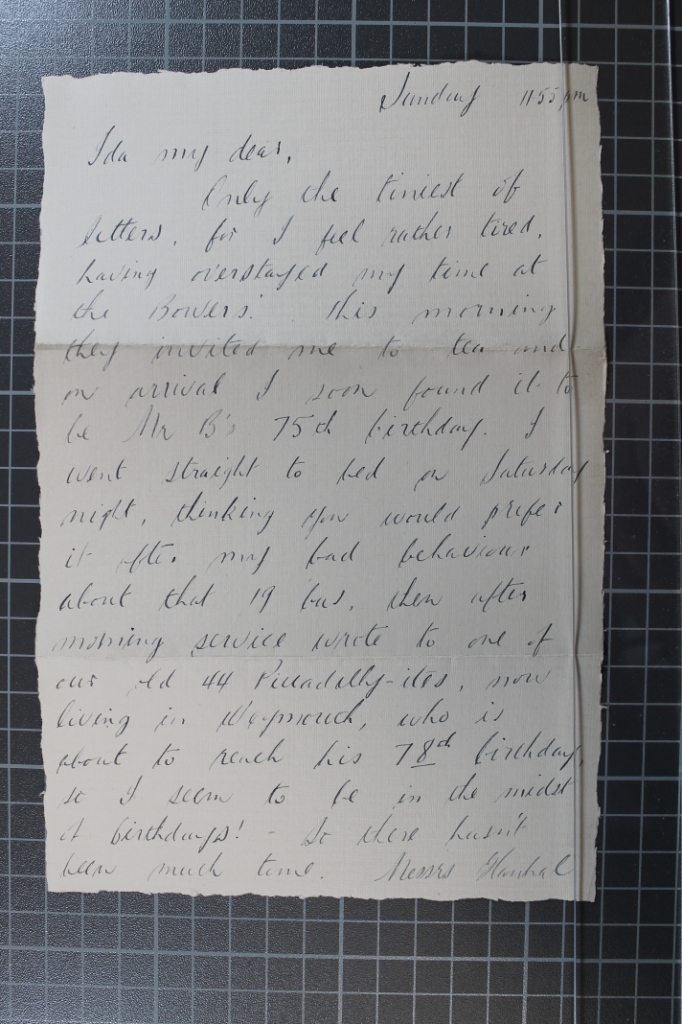 Sunday 11.55 pm
Ida my dear,
Only the tiniest of
letters, for I feel rather tired,
having overstayed my time at
the Bowers'. This morning
they invited me to tea and
on arrival I soon found it to
be Mr B's 75th birthday. I
went straight to bed on Saturday
night, thinking you would prefer
it after my bad behaviour
about that 19 bus, then after
morning service wrote to one of
our old 44 Piccadilly-ites, now
living in Weymouth, who is
about to reach his 78th birthday,
so I seem to be in the midst
of birthdays! - So there hasn't
been much time. Messrs